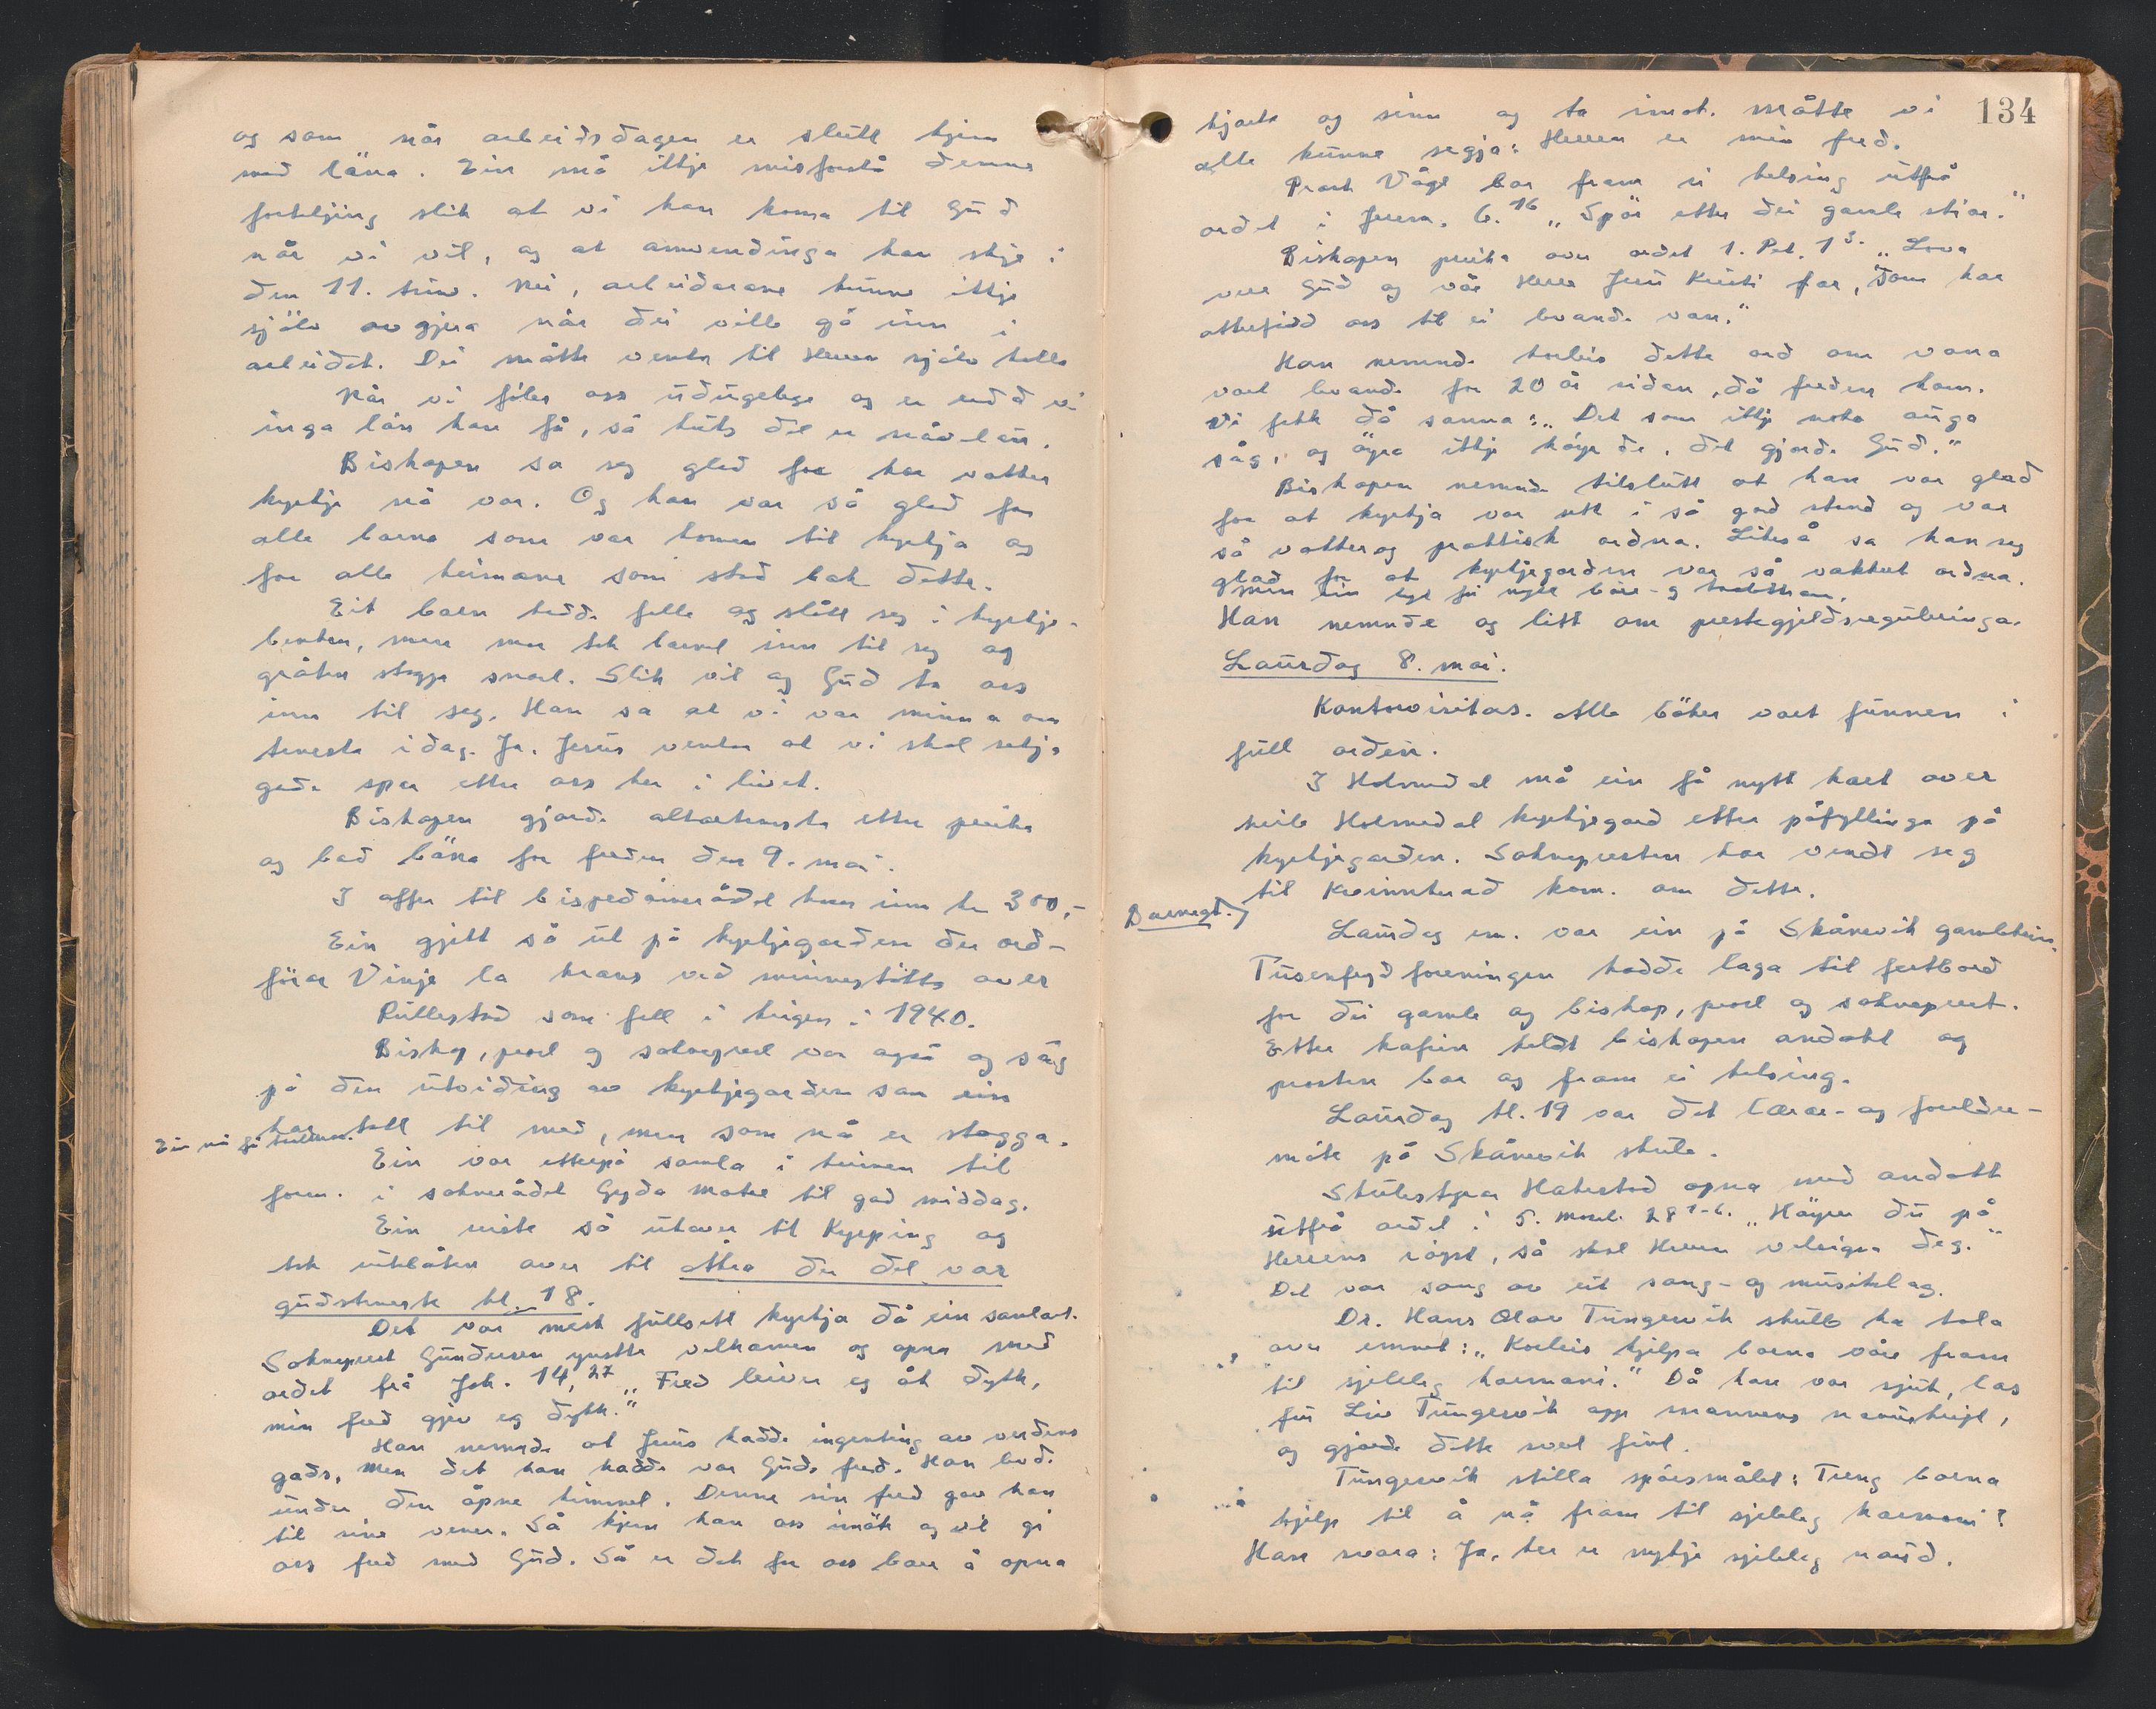 og som når arbeidsdagen er slutt kjem
med løna. Ein må ikkje misforstå denne
forteljing slik at vi kan koma til Gud
når vi vil, og at omvendinga kan skje i
den 11. time. Nei, arbeidarane kunne ikkje
sjølv avgjera når dei ville gå inn i
arbeidet. Dei måtte venta til Herren sjølv kalla
Når vi føler oss udugelege og er redd vi
inga løn kan få, så hugs det er nåveløn.
Biskopen sa seg glad for kor vakker
kyrkje nå var. Og han var så glad for
alle borna som var komen til kyrkja og
for alle heimane som stod bak dette.
Eit barn hadde falle og slått seg i kyrkje-
benken, men mor tok barnet inn til seg og
gråten stogga snart. Slik vil og Gud ta oss
inn til seg. Han sa at vi var minna om
tenesta idag. Ja, Jesus ventar at vi skal setja
gode spor etter oss her i livet.
Biskopen gjorde altarteneste etter preika
og bad bøna for freden den 9. mai.
I offer til bispedømerådet kom inn kr 300,-
Ein gjekk så ut på kyrkjegarden der ord-
førar Vinje la krans ved minnestøtta over
Rullestad som fell i krigen i 1940.
Biskop, prost og sokneprest var også og såg
på den utviding av kyrkjegarden som ein
har tatt til med, men som nå er stogga.
Ein må få
Ein var etterpå samla i heimen til
form. i soknerådet Gyda Matre til god middag.
Ein reiste så utover til Kyrping og
tok riksbåten over til Åkra der det var
gudsteneste kl. 18.
Det var mest fullsett kyrkja då ein samlast.
Sokneprest Gundersen ynskte velkomen og opna med
ordet frå Joh. 14, 27 „Fred leiver eg åt dykk,
min fred gjev eg dykk."
Han nemnde at Jesus hadde ingenting av verdens
gods, men det han hadde var Guds fred. Han budde
under den åpne himmel. Denne sin fred gav han
til sine vener. Så kjem han oss imøte og vil gi
oss fred med Gud. Så er det for oss bare å opna
134
hjarta og sinn og ta imot. Måtte vi
alle kunne segja: Herren er min fred.
Prost Våge bar fram ei helsing utfrå
ordet i Jerem. 6.16 „Spør etter dei gamle stiar."
Biskopen preika over ordet 1. Pet. 1 3. „Lova
vere Gud og vår Herre Jesu Kristi far, som har
atterfødd oss til ei levande von."
Han nemnde korleis dette ord om vona
vart levande for 20 år sidan, då freden kom.
Vi fekk då sanna: „Det som ikkje noko auga
såg, og øyra ikkje høyrde, det gjorde Gud."
Biskopen nemnde tilslutt at han var glad
for at kyrkja var sett i så god stand og var
så vakker og praktisk ordna. Likeså sa han seg
glad for at kyrkjegarden var så vakkert ordna.
Han nemnde og litt om prestegjeldsreguleringa.
Laurdag 8. mai.
Kontorvisitas. Alle bøker vart funnen i
full orden.
I Holmedal må ein få nytt kart over
heile Holmedal kyrkjegard etter påfyllinga på
kyrkjegarden. Soknepresten har vendt seg
til Kvinnherad kom. om dette.
Laurdag em. var ein på Skånevik gamleheim.
Tusenfrydforeningen hadde laga til festbord
for dei gamle og biskop, prost og sokneprest.
Etter kafien heldt biskopen andakt og
prosten bar og fram ei helsing.
Laurdag kl. 19 var det lærar- og foreldre-
møte på Skånevik skule.
Skulestyrar Hakestad opna med andakt
utfrå ordet i 5. Moseb. 28 1-6. „Høyrer du på
Herrens røyst, så skal Herren velsigna deg."
Det var song av eit song- og musikklag.
Dr. Hans Olav Tungesvik skulle ha tala
over emnet: „Korleis hjelpa borna våre fram
til sjeleleg harmoni." Då han var sjuk, las
fru Liv Tungesvik opp mannens manuskript,
og gjorde dette svært fint.
Tungesvik stilla spørsmålet: Treng borna
hjelp til å nå fram til sjeleleg harmoni?
Han svara: Ja, her er mykje sjeleleg naud.